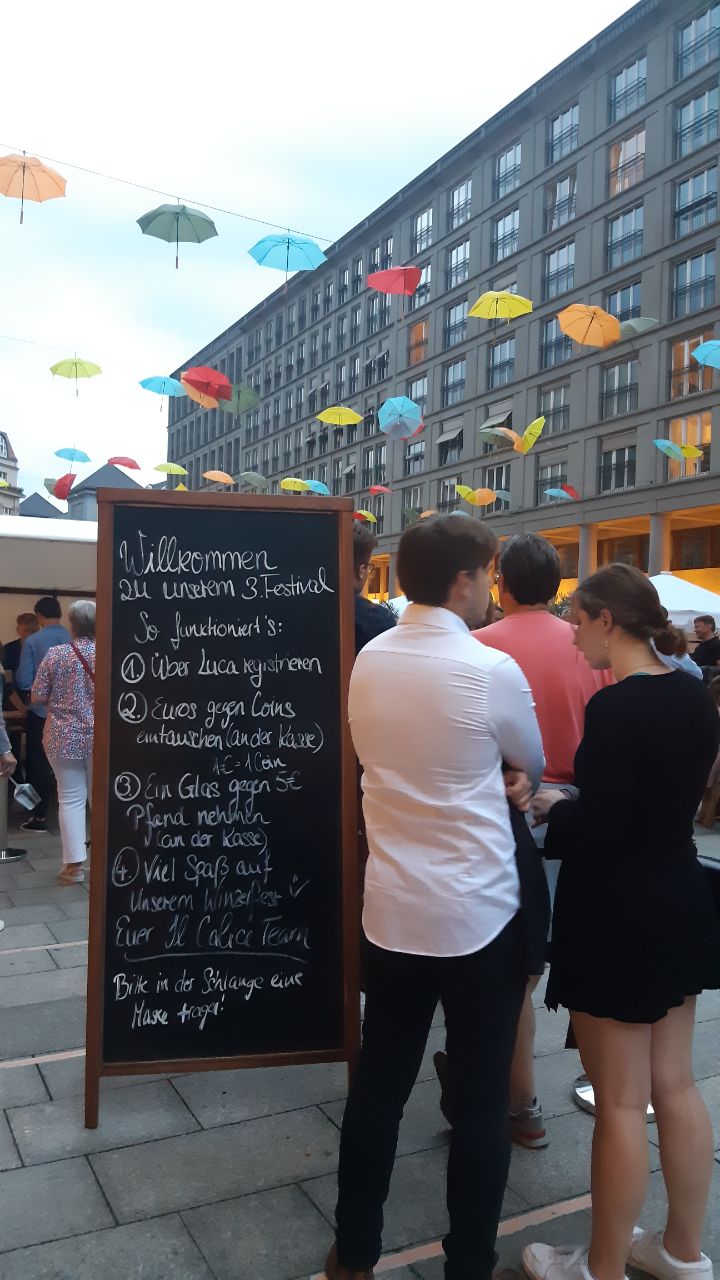 Willkommen
zu unserem 3. Festival
So funktioniert's:
1. Über Luca registrieren
2. Euros gegen Coins
eintauschen (an der Kasse)
1€ = 1 Coin
3 Ein Glas gegen 5€
Pfand nehmen
(an der Kasse)
4. Viel Spaß auf
Unserem Winzerfest
Euer Il Calice Team
Bitte in der Schlange eine
Maske tragen!